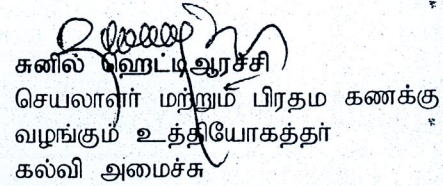 சுனில் ஹெட்டிஆரச்சி
செயலாளர் மற்றும் பிரதம கணக்கு
வழங்கும் உத்தியோகத்தர்
கல்வி அமைச்சு